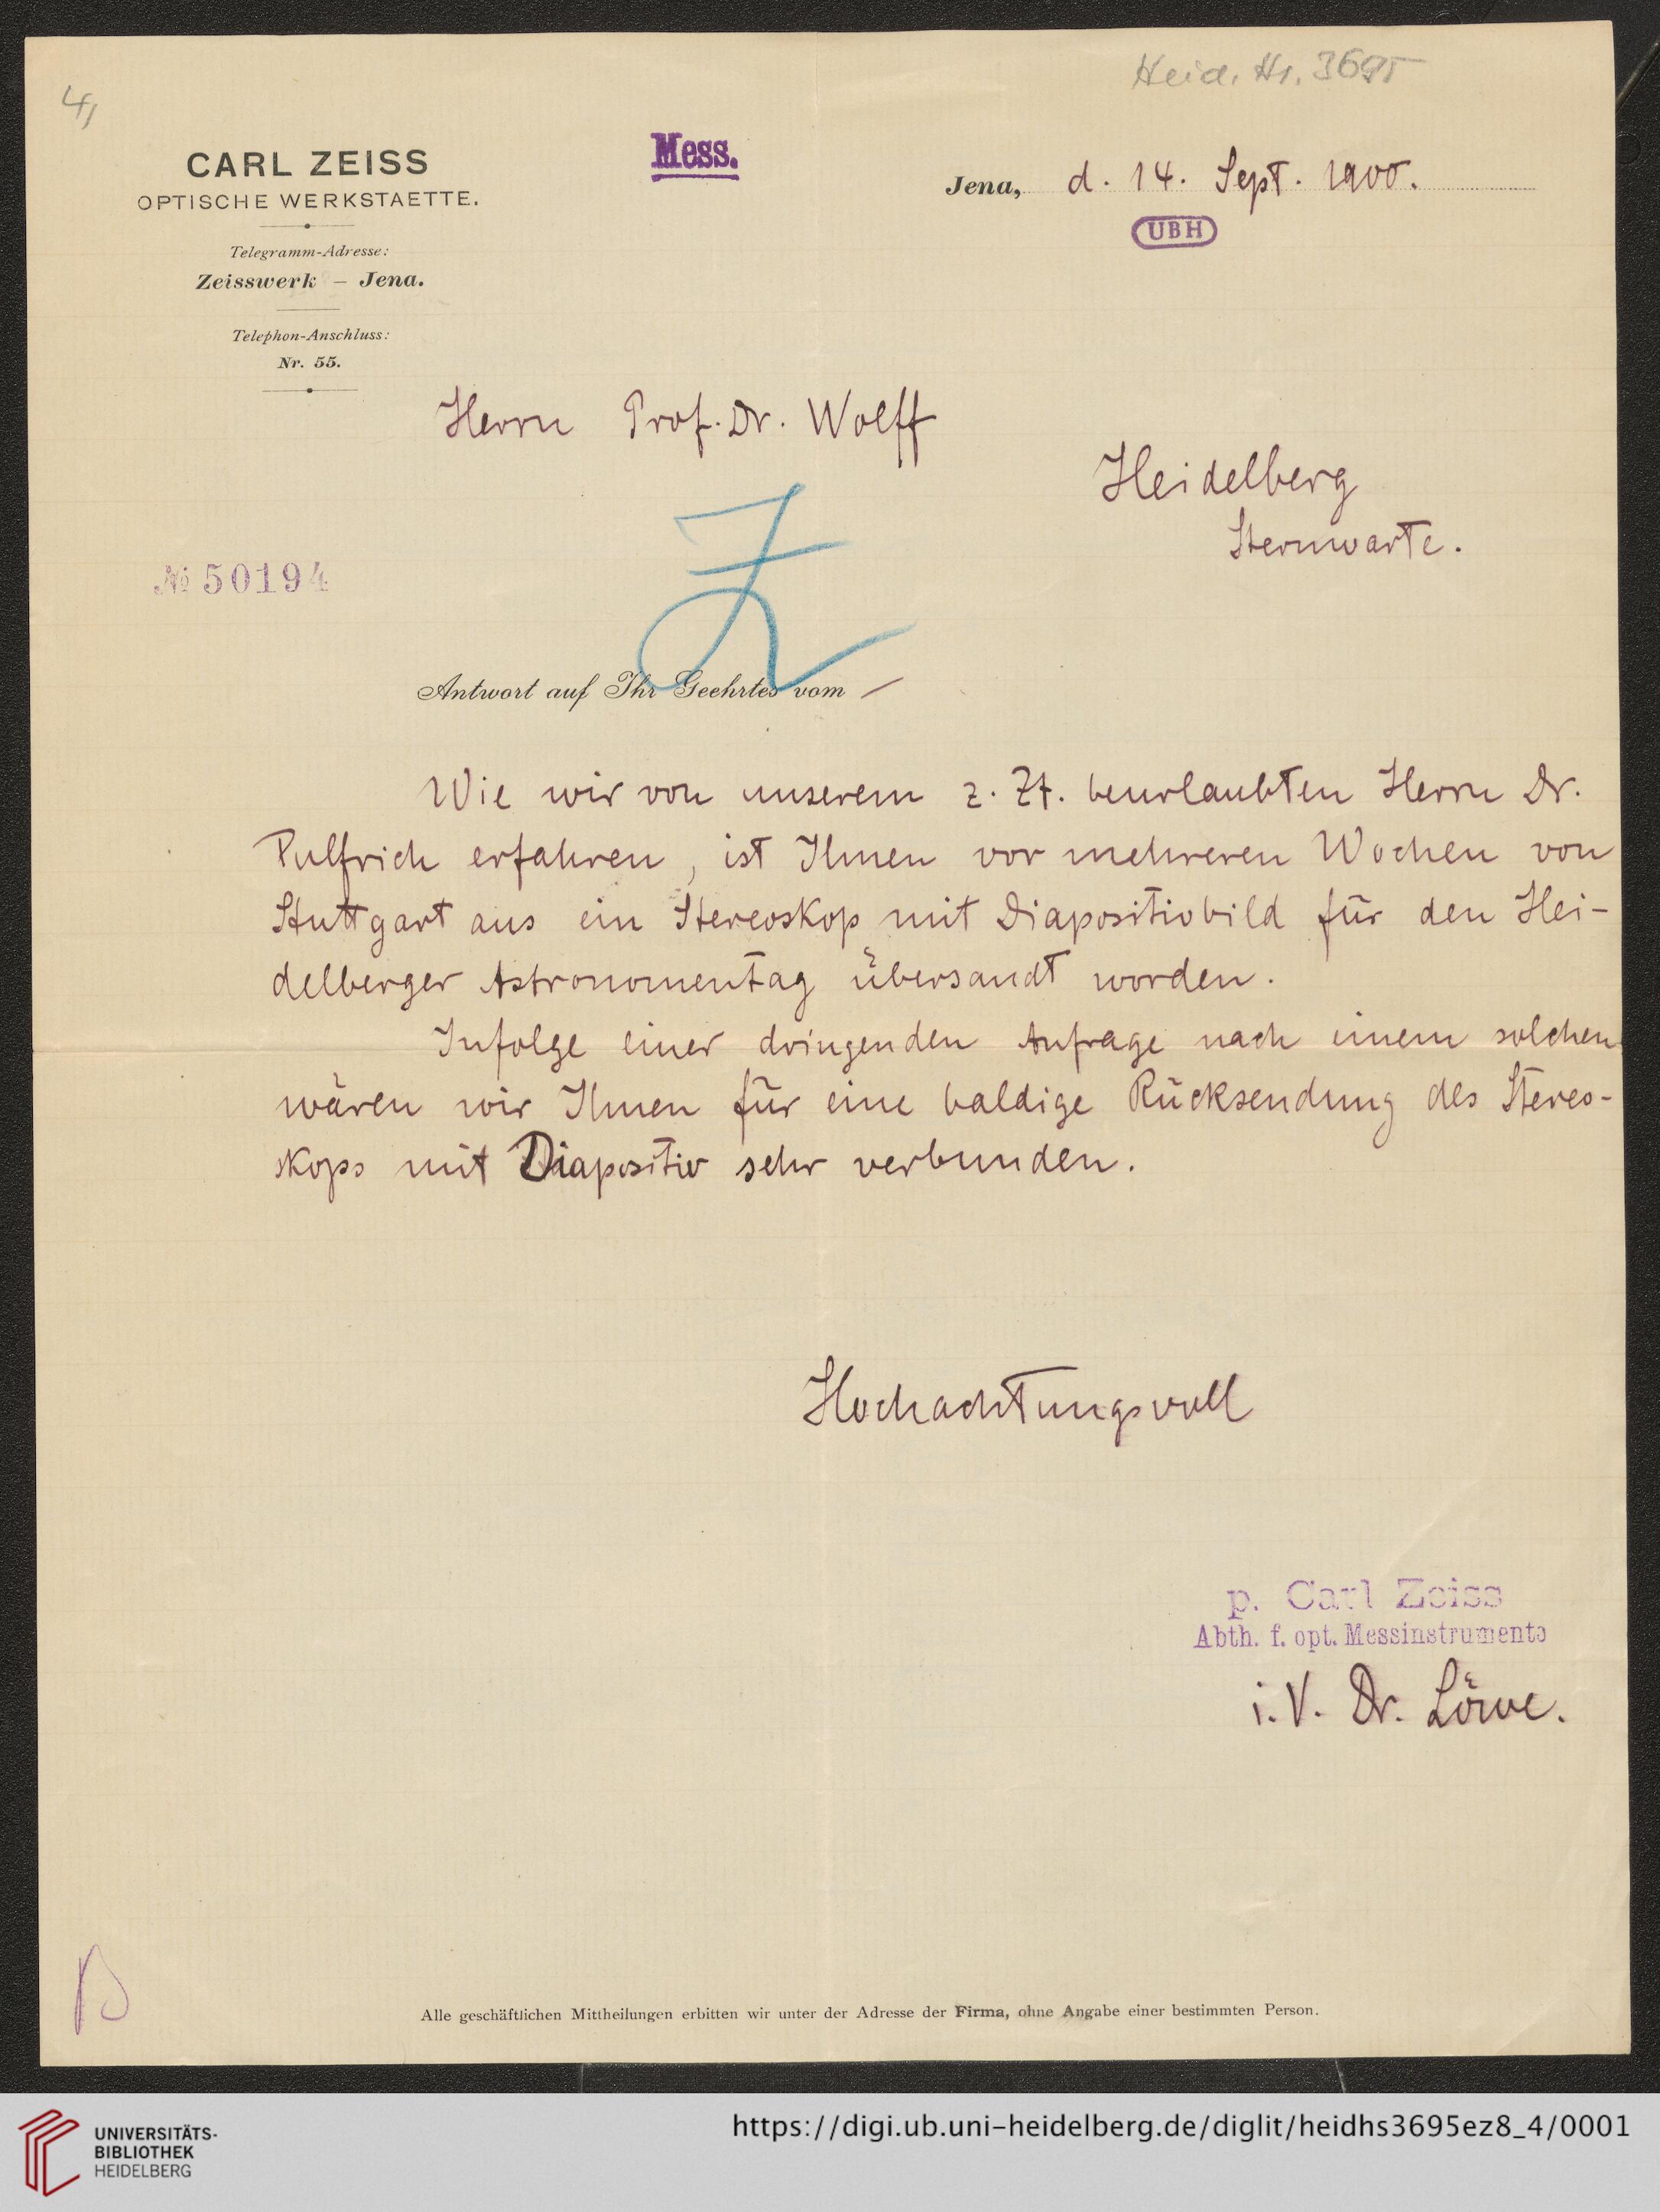 Heid. Hs. 3695
4)
CARL ZEISS
OPTISCHE WERKSTAETTE.
Mess.
Jena, d. 14. Sept. 1900.
UBH
Telegramm-Adresse:
Zeisswerk – Jena.
Telephon-Anschluss:
Nr. 55.
Herrn Prof. Dr. Wolff
Heidelberg
Sternwarte.
№ 50194
Antwort auf Ihr Geehrtes vom –
Wie wir von unserem z. Zt. beurlaubten Herrn Dr.
Pulfrich erfahren, ist Ihnen vor mehreren Wochen von
Stuttgart aus ein Stereoskop mit Diapositivbild für den Hei-
delberger Astronomentag übersandt worden.
Infolge einer dringenden Anfrage nach einem solchen
wären wir Ihnen für eine baldige Rücksendung des Stereo-
skops mit Diapositiv sehr verbunden.
Hochachtungsvoll
p. Carl Zeiss
Abth. f. opt. Messinstrumente
i. V. Dr. Löwe.
Alle geschäftlichen Mittheilungen erbitten wir unter der Adresse der Firma, ohne Angabe einer bestimmten Person.
UNIVERSITÄTS-
BIBLIOTHEK
HEIDELBERG
https://digi.ub.uni-heidelberg.de/diglit/heidhs3695ez8_4/0001